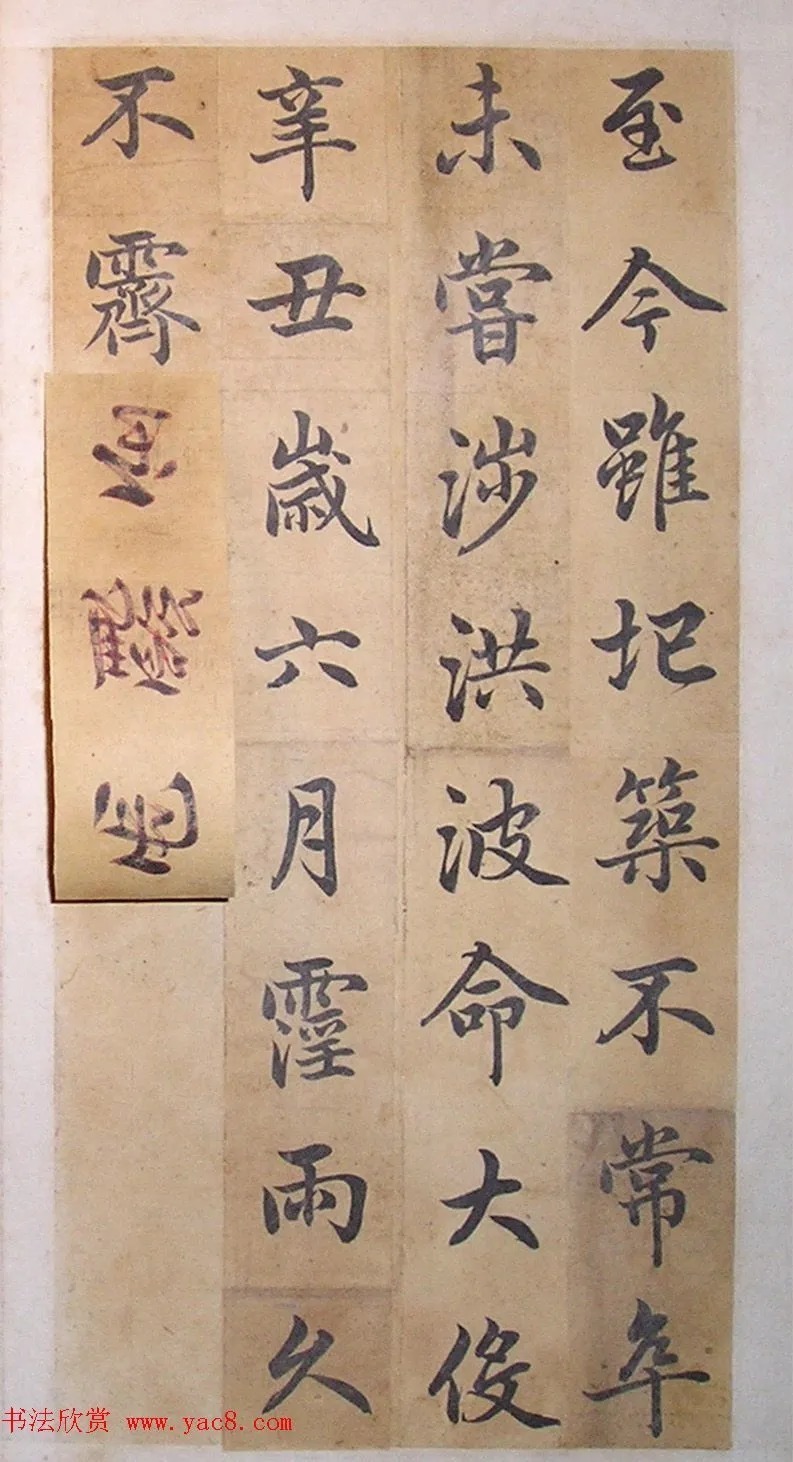 至今雖圮築不常年
未嘗涉洪波命大役
辛丑歲六月霪雨久
不霽
书法欣赏 www.yac8.com